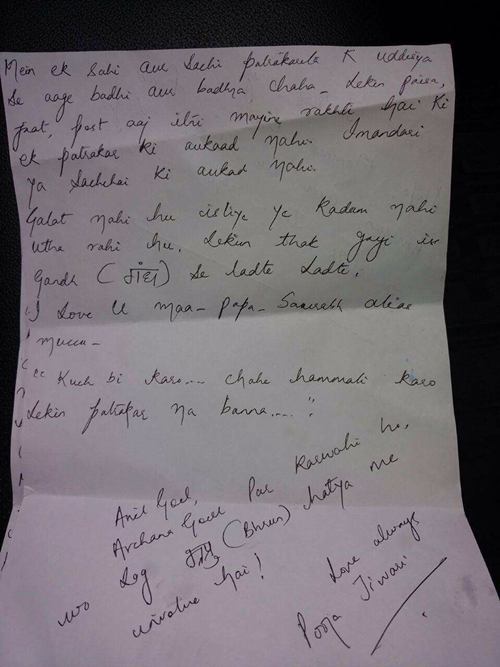 Mein ek Sahi aur Sachi patrakarita K uddesya
se aage badhi aur badhna chaha- Lekin paisa,
jaat, post aaj itni mayine rakhte hai Ki
ek patrakar ki aukaad nahi. Imandari
ya Sachchai Ki aukad nahi.
Galat nahi hu isliye ye Kadam nahi
utha rahi hu. Lekin thak gayi iss
Gandh (गंध) Se ladte Ladte.
I Love U maa- papa- Saurabh alias
muccu-
"Kuch bi karo.... Chahe hammali karo
Lekin patrakar na banna....".
Anil Goel,
Archana Goel Par Karwahi ho,
wo Log (Bhrun) hatya me
involve hai!
Love always
Pooja Tiwari